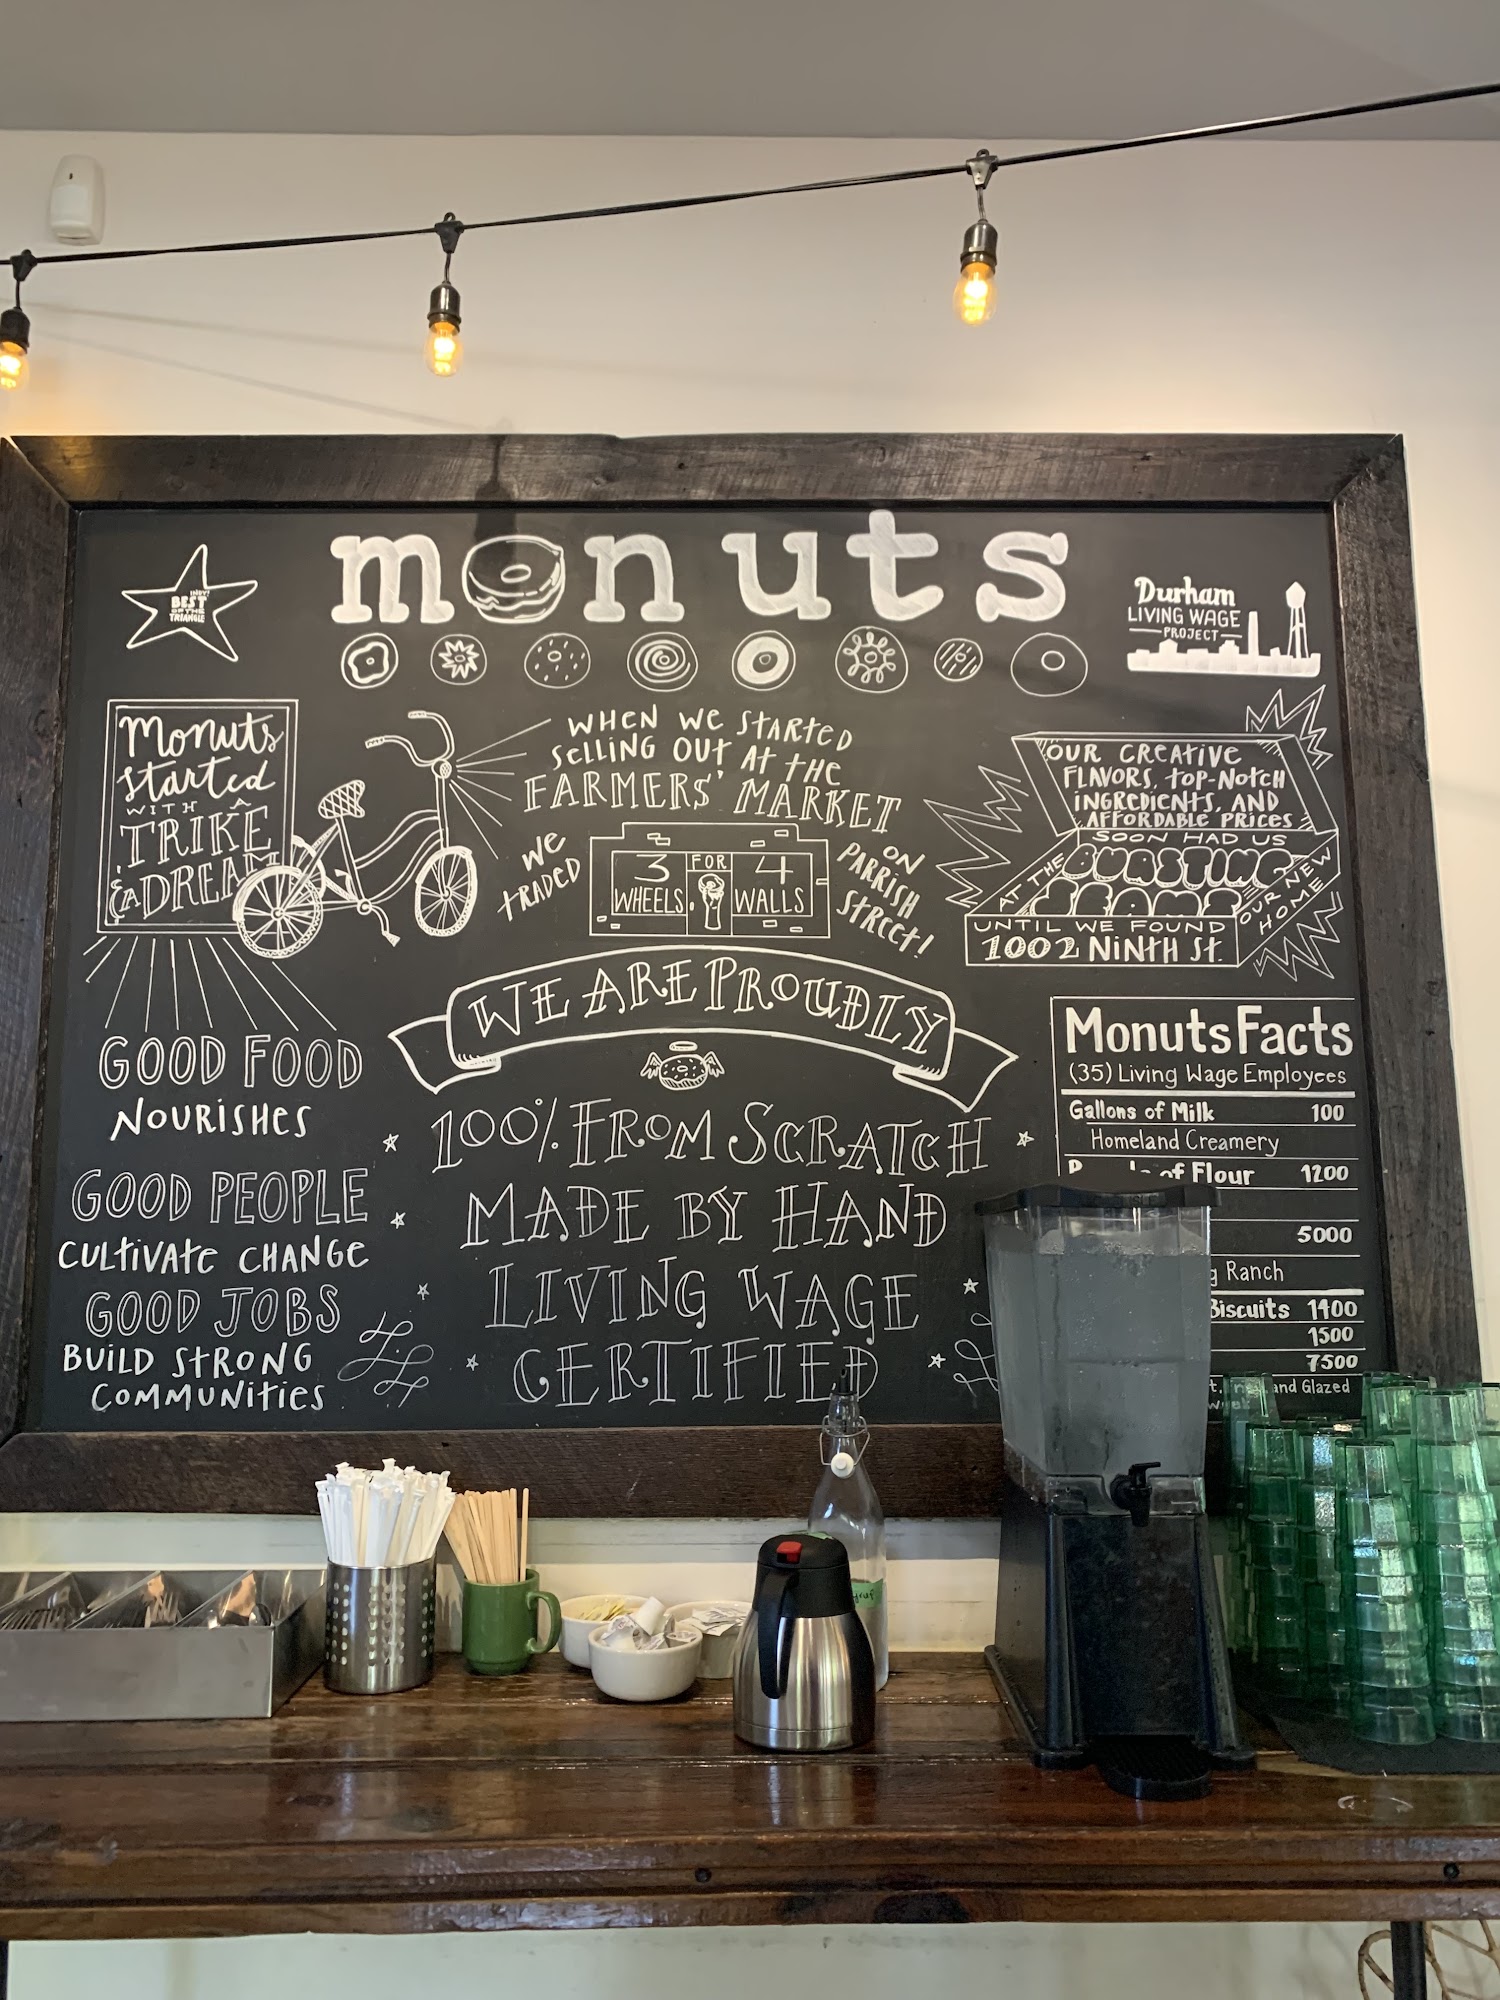 monuts
INDY!
BEST
OF THE
TRIANGLE
Durham
LIVING WAGE
PROJECT
Monuts
started
WITH A
TRIKE
& A DREAM
WHEN WE STARTED
SELLING OUT AT THE
FARMERS' MARKET
WE
TRADED
3 FOR 4
WHEELS WALLS
ON
PARRISH
STREET!
OUR CREATIVE
FLAVORS, TOP-NOTCH
INGREDIENTS, AND
AFFORDABLE PRICES
SOON HAD US
BURSTING
AT THE
SEAMS
UNTIL WE FOUND
1002 NINTH ST.
OUR NEW
HOME
GOOD FOOD
NOURISHES
GOOD PEOPLE
CULTIVATE CHANGE
GOOD JOBS
BUILD STRONG
COMMUNITIES
WE ARE PROUDLY
100% FROM SCRATCH
MADE BY HAND
LIVING WAGE
CERTIFIED
Monuts Facts
(35) Living Wage Employees
Gallons of Milk 100
Homeland Creamery
of Flour 1200
5000
Ranch
Biscuits 1400
1500
7500
and Glazed